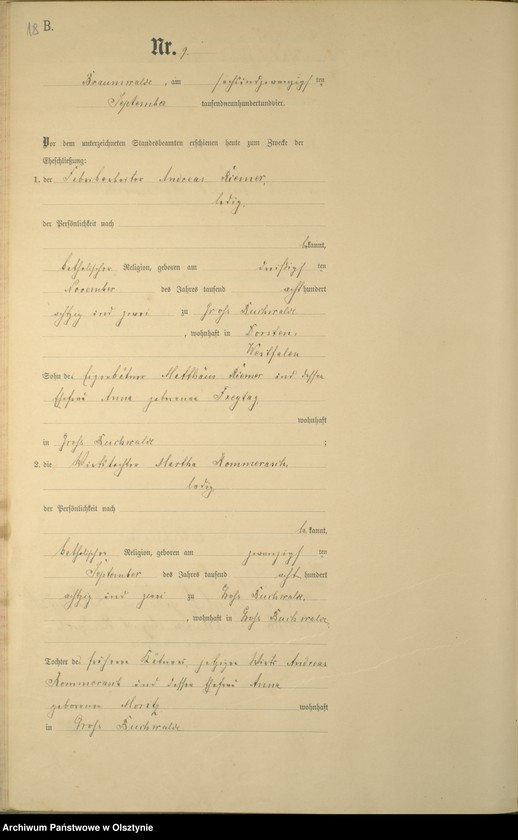 18 B.
Nr. 9.
Braunswalde, am sechsundzwanzigsten
September tausendneunhundertundvier.
Vor dem unterzeichneten Standesbeamten erschienen heute zum Zwecke der
Eheschließung:
1. der Fabrikarbeiter Andreas Riemer,
ledig,
der Persönlichkeit nach
bekannt,
katholischer Religion, geboren am dreißigsten
November des Jahres tausend achthundert
achtzig und zwei zu Groß Buchwalde
, wohnhaft in Dorsten,
Westfalen
Sohn des Eigenkätner Matthäus Riemer und dessen
Ehefrau Anna geborenen Freytag
wohnhaft
in Groß Buchwalde ;
2. die Wirtstochter Martha Kommerasch
ledig
der Persönlichkeit nach
bekannt,
katholischer Religion, geboren am zwanzigsten
September des Jahres tausend achthundert
achtzig und zwei zu Groß Buchwalde,
, wohnhaft in Groß Buchwalde,
Tochter des früheren Kätners, jetzigen Wirts Andreas
Kommerasch und dessen Ehefrau Anna
geborenen Moritz wohnhaft
in Groß Buchwalde.
Archiwum Państwowe w Olsztynie